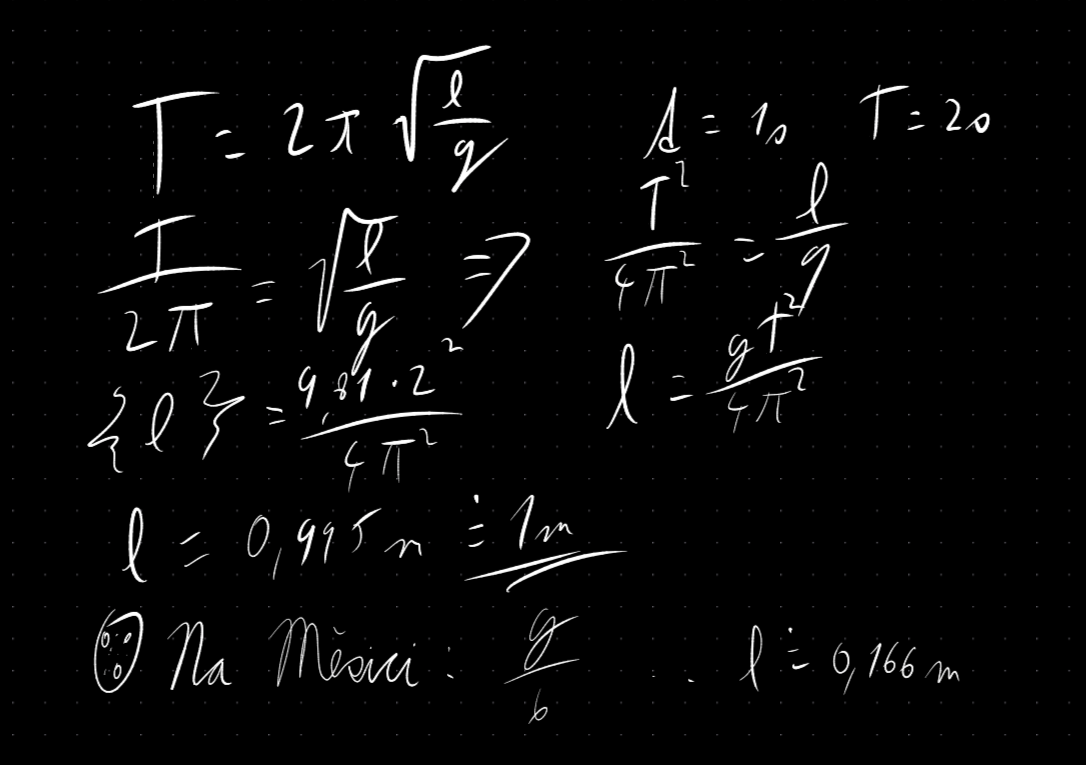 T = 2π √(l/g)    t = 1s    T = 2s
T/2π = √(l/g) ⇒    T²/4π² = l/g
{l} = 9,81·2²/4π²    l = gT²/4π²
l = 0,995 m ≐ 1m
Na Měsíci: g/6 .. l ≐ 0,166 m